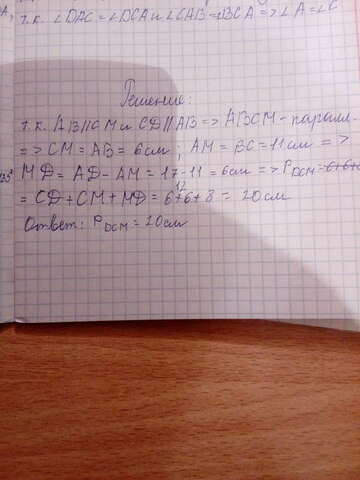 т.к. ∠DAC = ∠DCA и ∠CAB = ∠BCA => ∠A = ∠C
Решение:
т.к. AB||CM и CD||AB => ABCM - паралл-
=> CM = AB = 6см; AM = BC = 11см =>
MD = AD - AM = 17 - 11 = 6см => P DCM = 6+6+
= CD + CM + MD = 6+6+8 = 20см
12
Ответ: P DCM = 20см